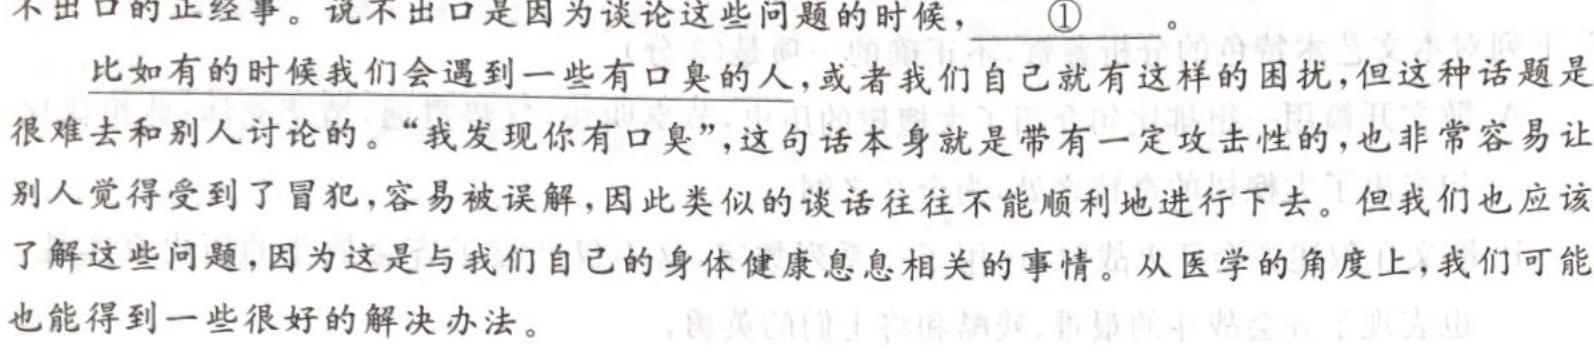 不出口的正经事。说不出口是因为谈论这些问题的时候，①。
比如有的时候我们会遇到一些有口臭的人，或者我们自己就有这样的困扰，但这种话题是
很难去和别人讨论的。“我发现你有口臭”，这句话本身就是带有一定攻击性的，也非常容易让
别人觉得受到了冒犯，容易被误解，因此类似的谈话往往不能顺利地进行下去。但我们也应该
了解这些问题，因为这是与我们自己的身体健康息息相关的事情。从医学的角度上，我们可能
也能得到一些很好的解决办法。